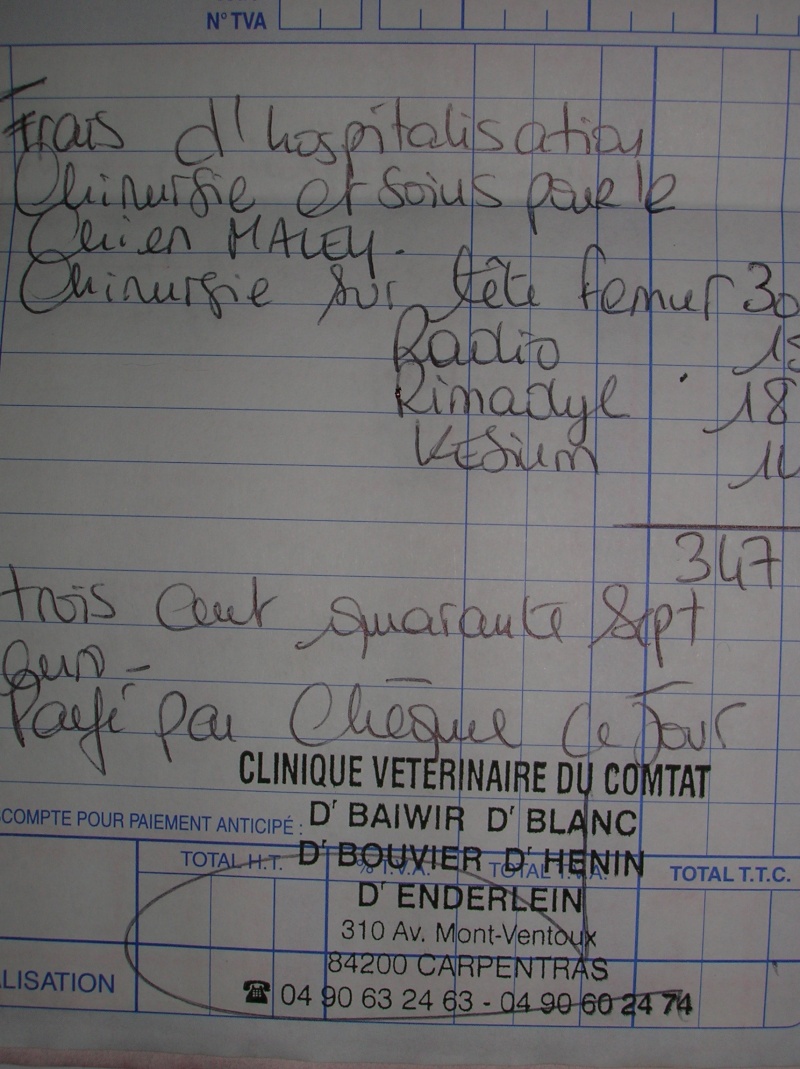 N° TVA
Frais d'hospitalisation
Chirurgie et soins pour le
Chien MALEY.
Chirurgie sur tête femur 30
Radio
Rimadyl 18
Kesium
347
trois cent quarante sept
euro -
Payé par chèque ce jour
CLINIQUE VETERINAIRE DU COMTAT
COMPTE POUR PAIEMENT ANTICIPÉ : Dr BAIWIR Dr BLANC
TOTAL H.T. Dr BOUVIER Dr HENIN % T.V.A. TOTAL T.V.A. TOTAL T.T.C.
Dr ENDERLEIN
310 Av. Mont-Ventoux
84200 CARPENTRAS
LISATION ☎ 04 90 63 24 63 - 04 90 60 24 74